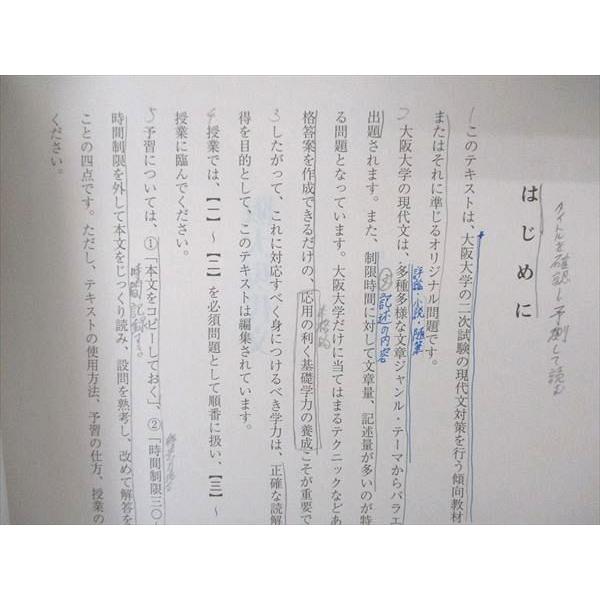 タイトルを確認し予測して読む
はじめに
1 このテキストは、大阪大学の二次試験の現代文対策を行う傾向教材
またはそれに準じるオリジナル問題です。
評論・小説・随筆
2 大阪大学の現代文は、多種多様な文章ジャンル・テーマからバラエ
記述の内容
出題されます。また、制限時間に対して文章量、記述量が多いのが特
る問題となっています。大阪大学だけに当てはまるテクニックなどあ
本格的
格答案を作成できるだけの、応用の利く基礎学力の養成こそが重要で
3 したがって、これに対応すべく身につけるべき学力は、正確な読解
得を目的として、このテキストは編集されています。
4 授業では、【一】～【二】を必須問題として順番に扱い、【三】～
授業に臨んでください。
5 予習については、①「本文をコピーしておく」、②「時間制限三〇～
時間記録する。
時間制限を外して本文をじっくり読み、設問を熟考し、改めて解答を
ことの四点です。ただし、テキストの使用方法、予習の仕方、授業の
ください。